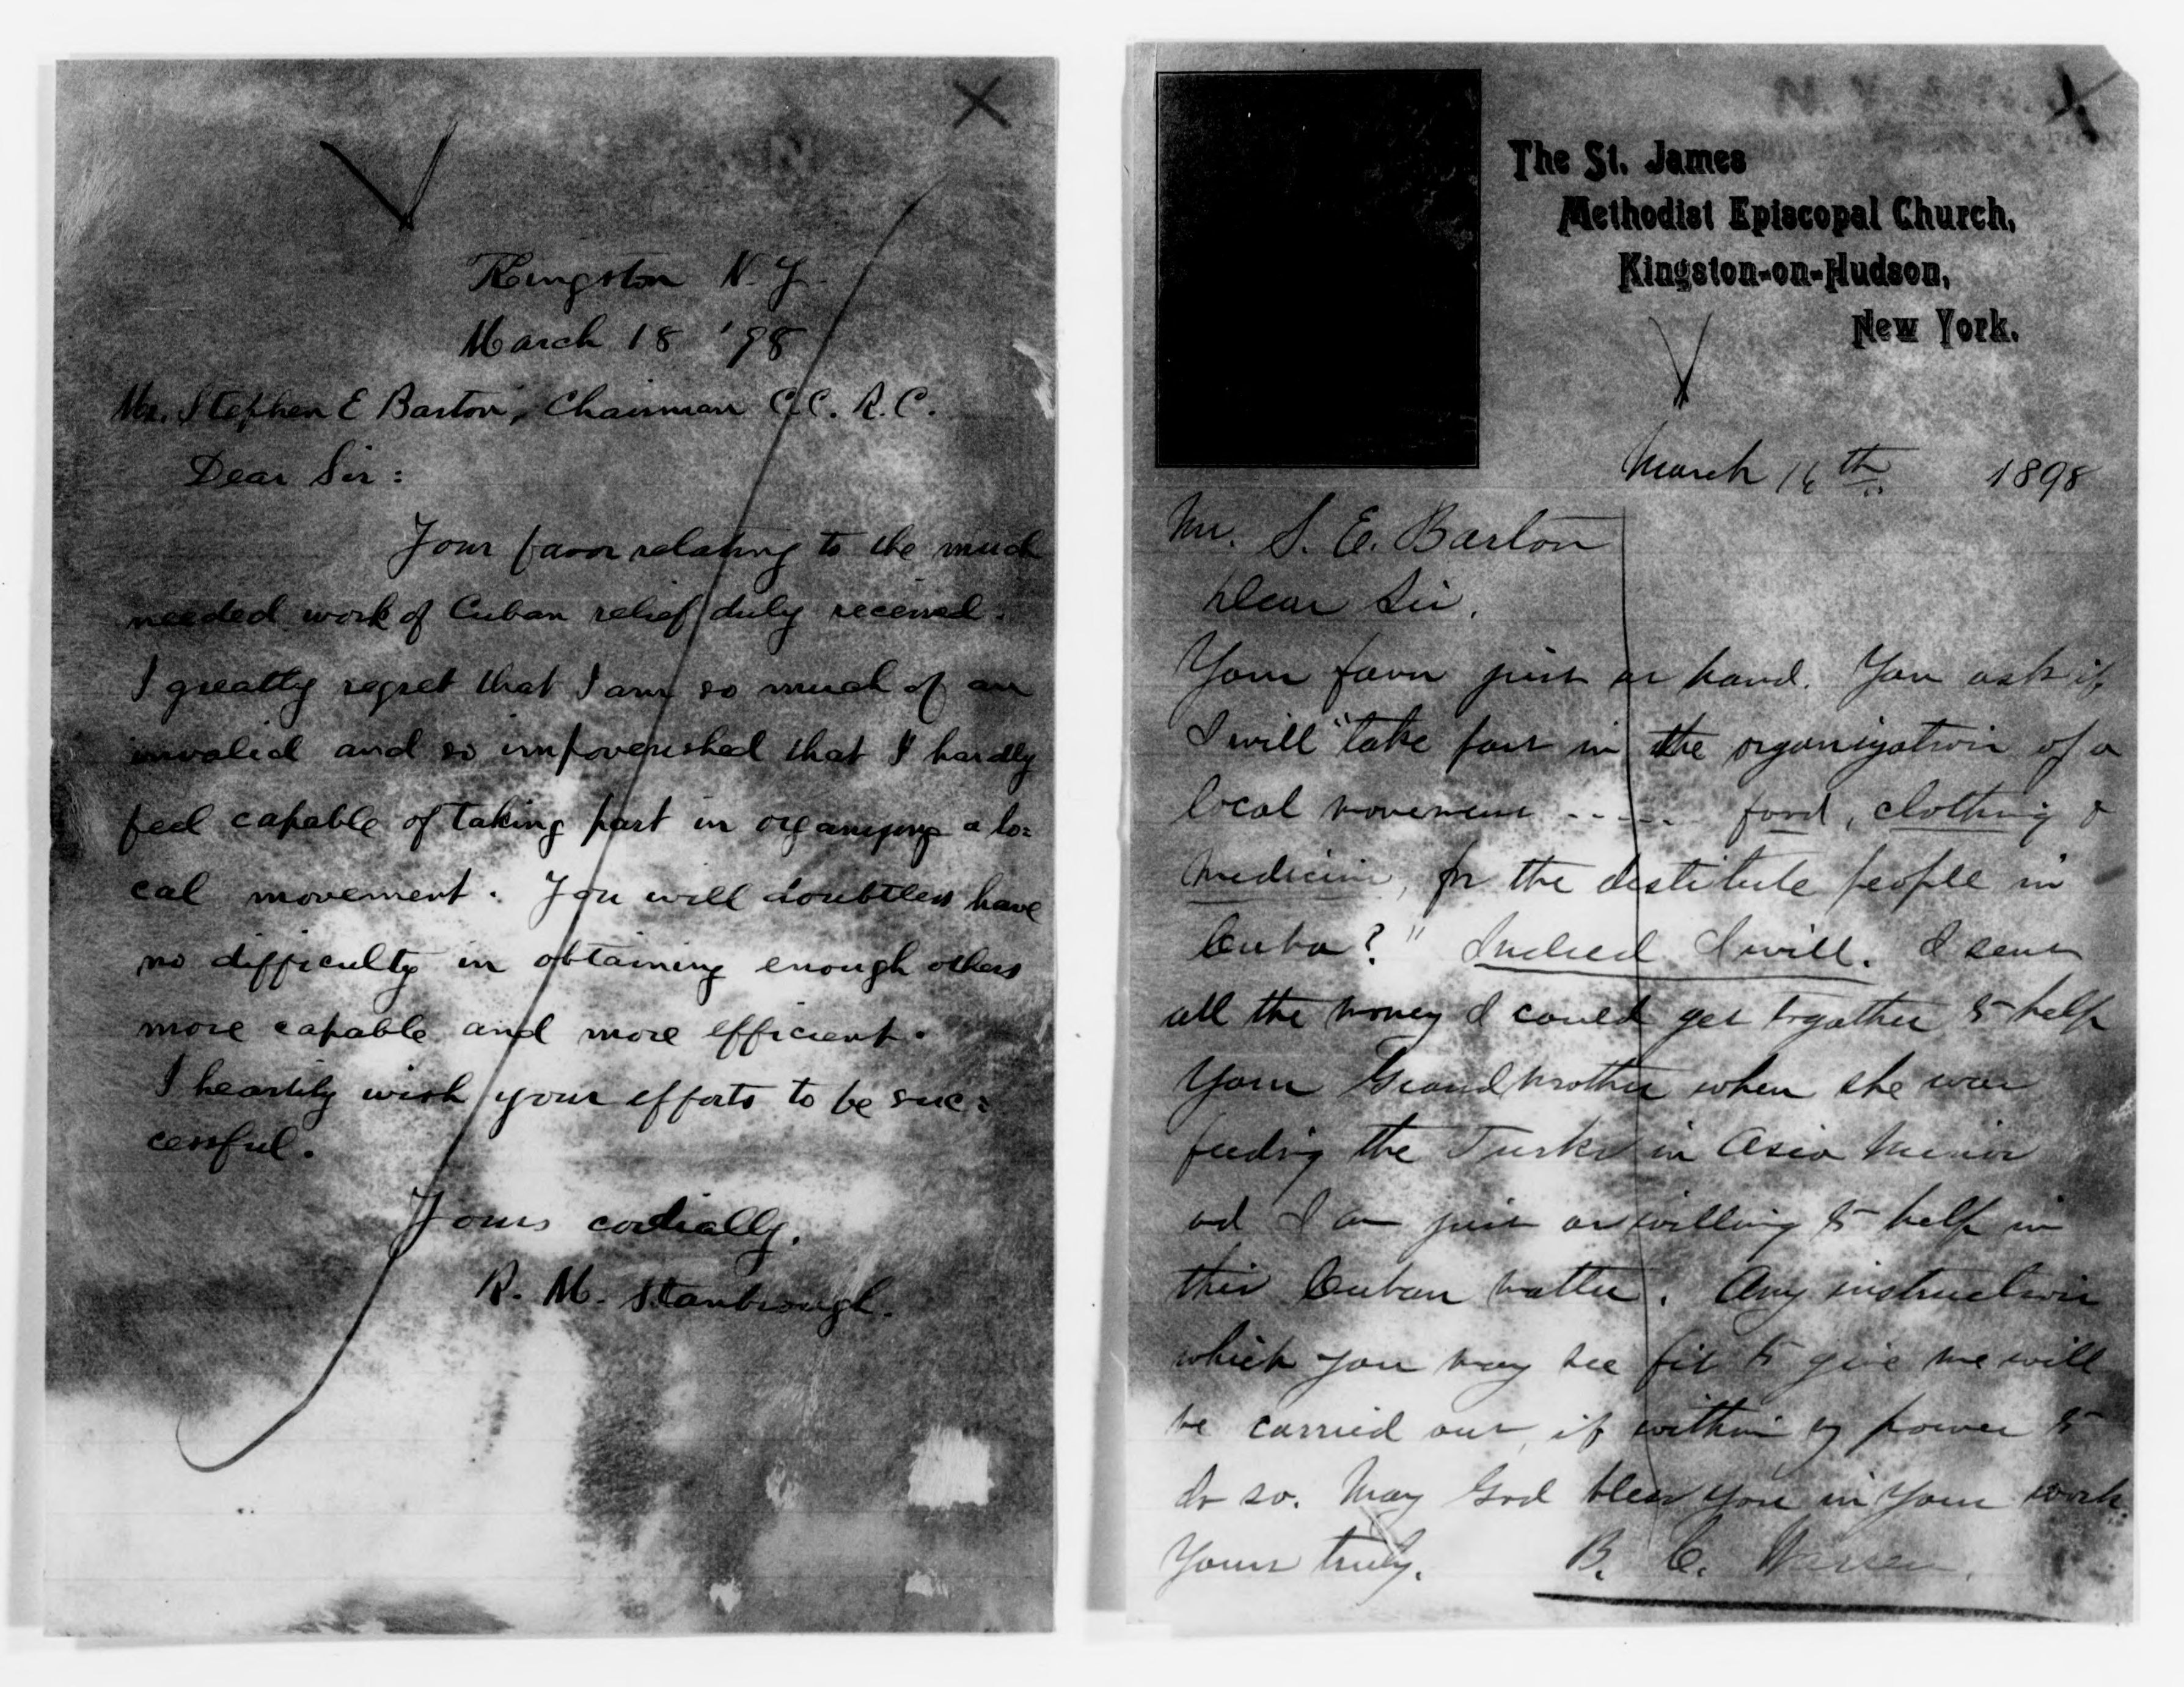 Kingston N.Y.
March 18 '98
Mr. Stephen E Barton, Chairman C.C. R.C.
Dear Sir:
Your favor relating to the much
needed work of Cuban relief duly received.
I greatly regret that I am so much of an
invalid and so impoverished that I hardly
feel capable of taking part in organizing a lo=
cal movement. You will doubtless have
no difficulty in obtaining enough others
more capable and more efficient.
I heartily wish your efforts to be suc=
cessful.
Yours cordially,
R. M. Stanbrough.
The St. James
Methodist Episcopal Church,
Kingston-on-Hudson,
New York.
March 16th 1898
Mr. S. E. Barton
Dear Sir,
Your favor just at hand. You ask if
I will "take part in the organization of a
local movement ----- food, clothing &
medicine, for the destitute people in
Cuba?" Indeed I will. I sent
all the money I could get together to help
your Grandmother when she was
feeding the Turks in Asia Minor
and I am just as willing to help in
this Cuban matter. Any instruction
which you may see fit to give me will
be carried out, if within my power to
do so. May God bless you in your work.
Yours truly, B. C. Warren.